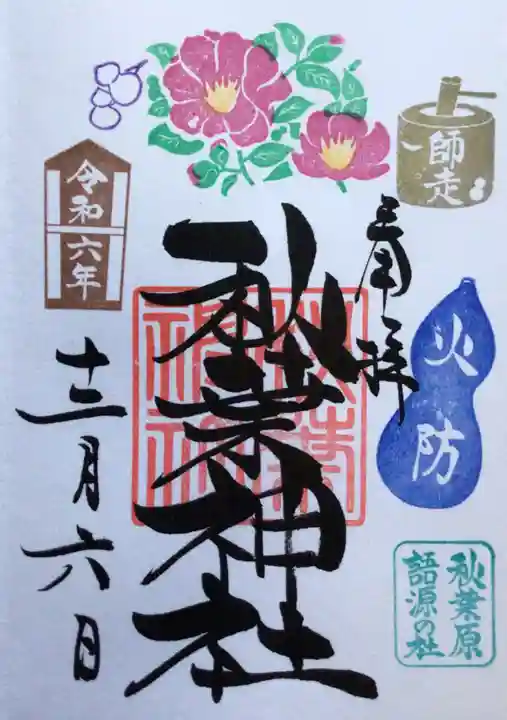 師走
奉拝
火防
秋葉原
語源の社
秋葉神社
秋葉
神社
令和六年
十二月六日